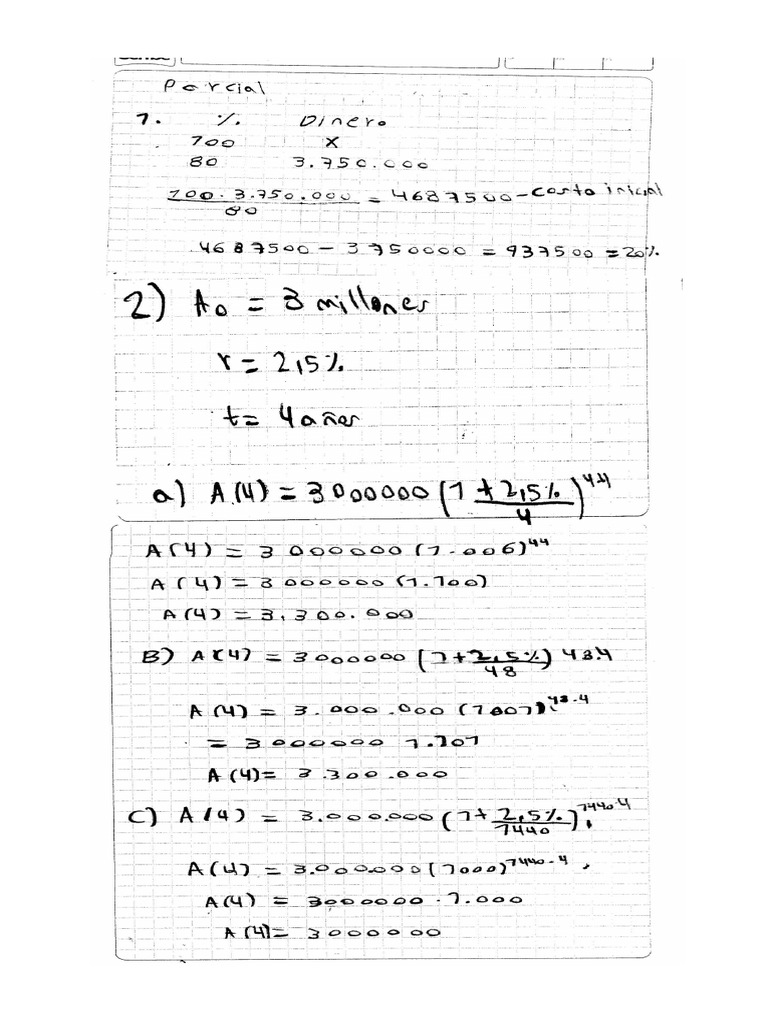 Parcial
1. % Dinero
100 X
80 3.750.000
100 . 3.750.000 / 80 = 4687500 - costo inicial
4687500 - 3750000 = 937500 = 20%
2) A0 = 3 millones
r = 2,5%
t = 4 años
a) A(4) = 3000000 (1 + 2,5% / 4)^4.4
A(4) = 3000000 (1.006)^44
A(4) = 3000000 (1.100)
A(4) = 3,300.000
B) A(4) = 3000000 (1 + 2,5% / 48) 48.4
A(4) = 3.000.000 (1007)^48.4
= 3000000 1.101
A(4) = 3.300.000
C) A(4) = 3.000.000 (1 + 2,5% / 1440)^1440.4
A(4) = 3.000.000 (1000)^1440-4
A(4) = 3000000 . 1.000
A(4) = 3000000